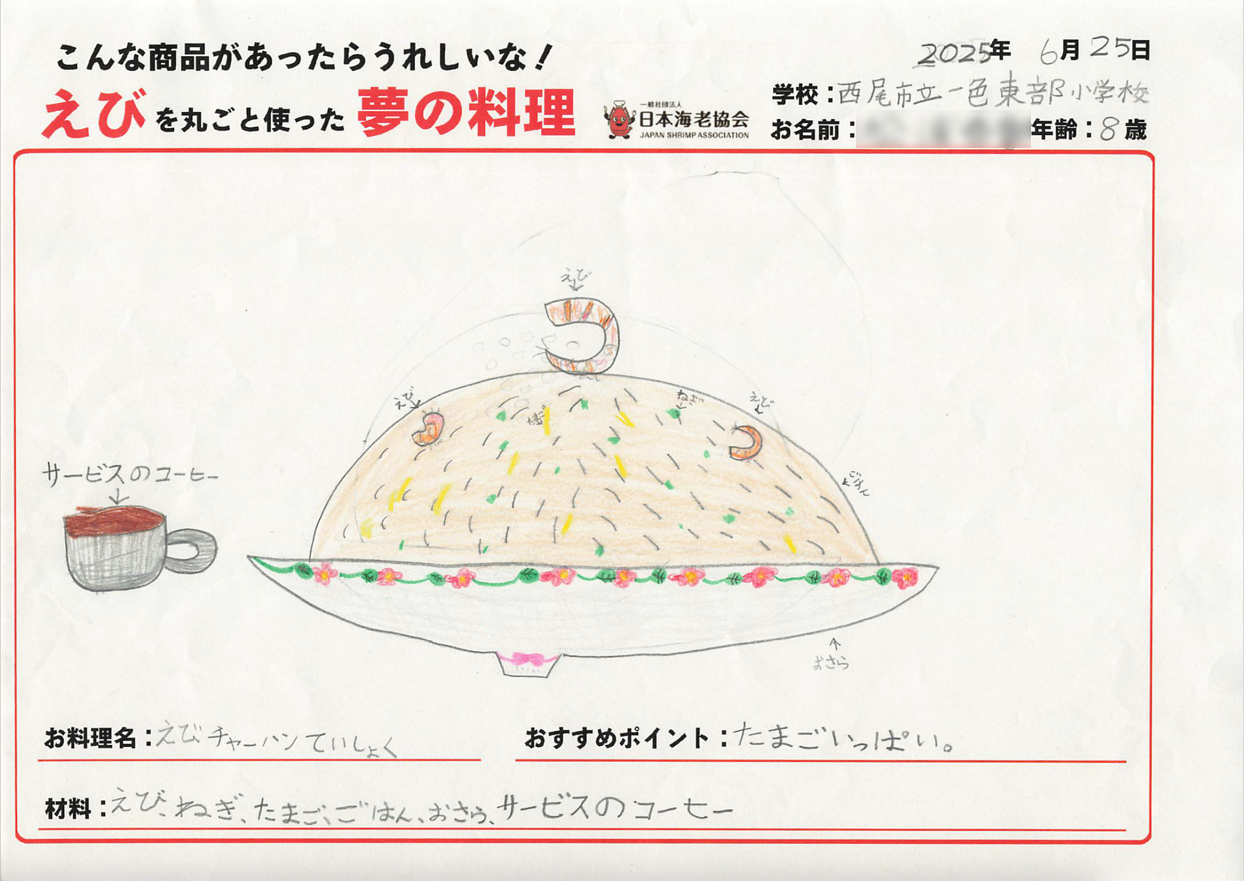 こんな商品があったらうれしいな!
えびを丸ごと使った夢の料理
一般社団法人
日本海老協会
JAPAN SHRIMP ASSOCIATION
2025年 6月25日
学校:西尾市立一色東部小学校
お名前:
年齢:8歳
えび
えび
ねぎ
えび
ごはん
サービスのコーヒー
おさら
お料理名:えびチャーハンていしょく
おすすめポイント:たまごいっぱい。
材料:えび、ねぎ、たまご、ごはん、おさら、サービスのコーヒー